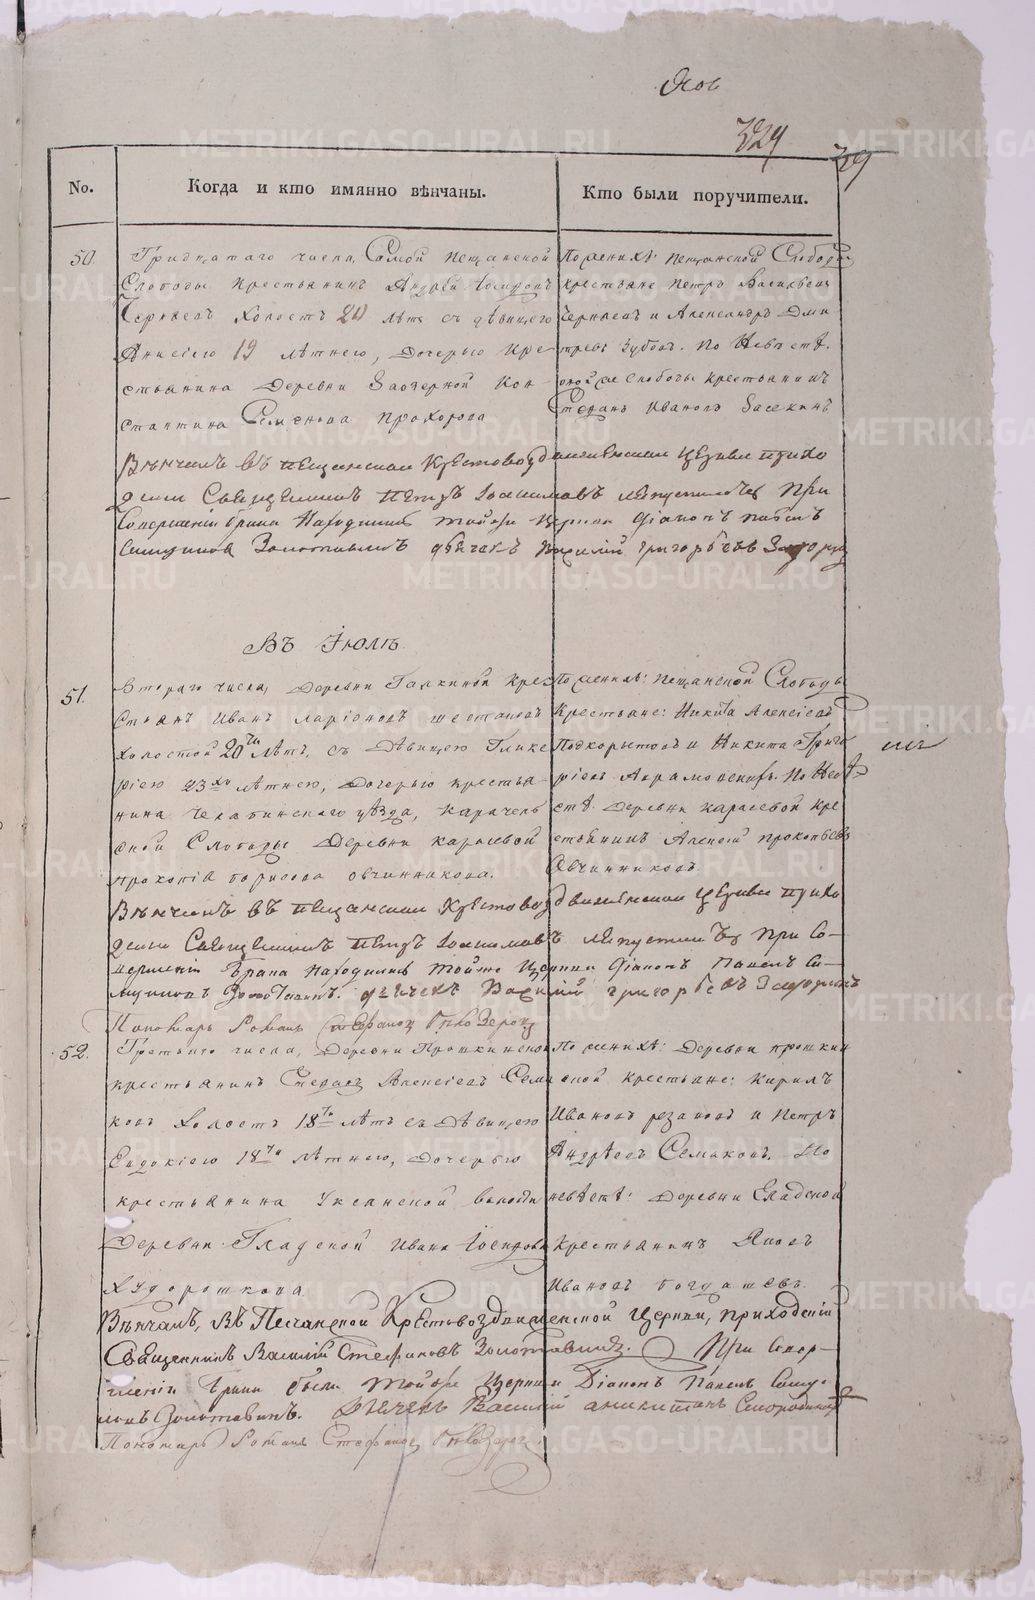 329
No.
Когда и кто имянно вѣнчаны.
Кто были поручители.
50.
Тридцатаго числа, Самой Пещанской
Слободы Крестьянинъ Андрей
холостъ 20 лѣтъ съ дѣвицею
Анисіею 19 лѣтнею, дочерью кре-
стьянина деревни Заозерной Кон-
стантина Семенова Прохорова
По женихѣ: Пещанской Слободы
крестьяне Петръ Васильевъ
и Александръ Дми
тревъ Зубовъ. По Невѣстѣ.
слободы крестьянинъ
Степанъ Ивановъ Засекинъ
Вѣнчалъ въ Пещанской Крестовоздвиженской церкви прихо
дской Священникъ Петръ При
Совершеніи брака Находились тойже церкви діаконъ Павелъ
Золотавинъ дьячекъ Василій Григорьевъ
Въ Іюлѣ
51.
Втораго числа, деревни Галкиной крес
стьянъ Иванъ Ларіоновъ Шестаковъ
холостой 20ти лѣтъ, съ дѣвицею Глике
ріею 23хъ лѣтнею, дочерью крестья-
нина Челябинскаго уѣзда, Карачель
ской Слободы деревни Карасевой
Прокопія Борисова Овчинникова.
По женихѣ: Пещанской Слободы
Крестьяне: Никита Алексеевъ
Подкорытовъ и Никита Григо
рьевъ По Невѣ
стѣ. деревни Карасевой кре
стьянинъ Алексей Прокопьевъ
Овчинниковъ
Вѣнчалъ въ Пещанской Крестовоздвиженской церкви прихо
дской Священникъ Петръ При Со-
вершеніи брака находились тойже Церкви діаконъ Павелъ Си-
Золотавинъ. дьячекъ Василій Григорьевъ
Пономарь Романъ Стефановъ
52.
Третьяго числа, деревни Прошкинской
крестьянинъ Стефанъ Алексеевъ Сема
ковъ холостъ 18ти лѣтъ съ дѣвицею
Евдокіею 18ти лѣтнею, дочерью
крестьянина Уксянской волости
деревни Гладской Ивана
Худорошкова
По женихѣ: деревни Прошкин
ской крестьяне: Кирилъ
Ивановъ Резановъ и Петръ
Андреевъ Семаковъ. По
невѣстѣ: деревни Гладской
Крестьянинъ Яковъ
Ивановъ Богдашевъ
Вѣнчалъ, въ Песчанской Крестовоздвиженской церкви, приходскій
Священникъ Василій Стефановъ Золотавинъ. При Совер-
шеніи брака были тойже церкви Діаконъ Павелъ Симу-
новъ Золотавинъ. Дьячекъ Василій Смородинцовъ
Пономарь Романъ Стефановъ
METRIKI.GASO-URAL.RU